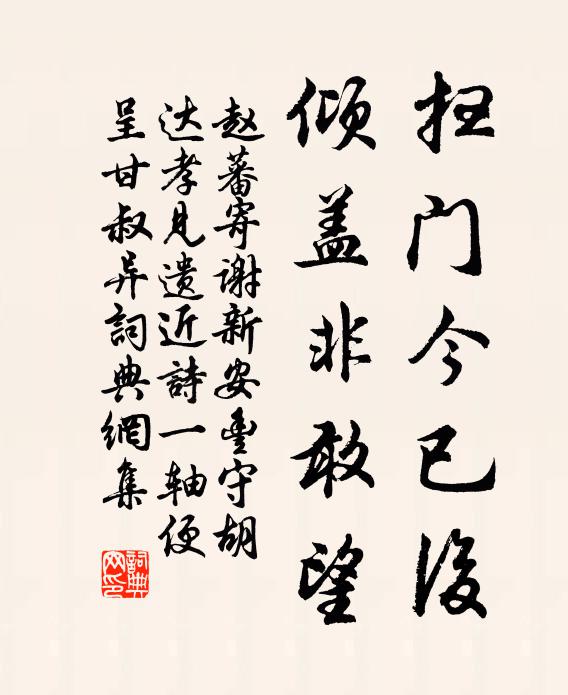 扫门今已后
倾盖非敢望
赵蕃寄谢新安丰守胡
达孝见遗近詩一轴便
呈甘叔异詞典網集
詞典网印